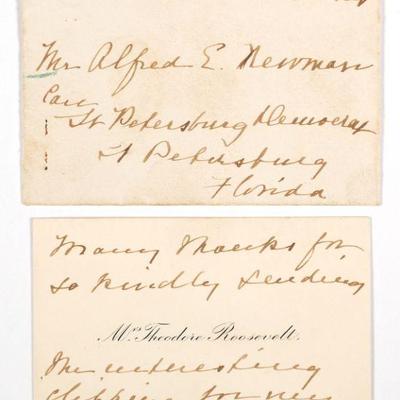 Mr Alfred E. Newman
Care
St Petersburg Democrat
St Petersburg
Florida
Many thanks for
so kindly sending
Mrs. Theodore Roosevelt.
the interesting
clipping for my